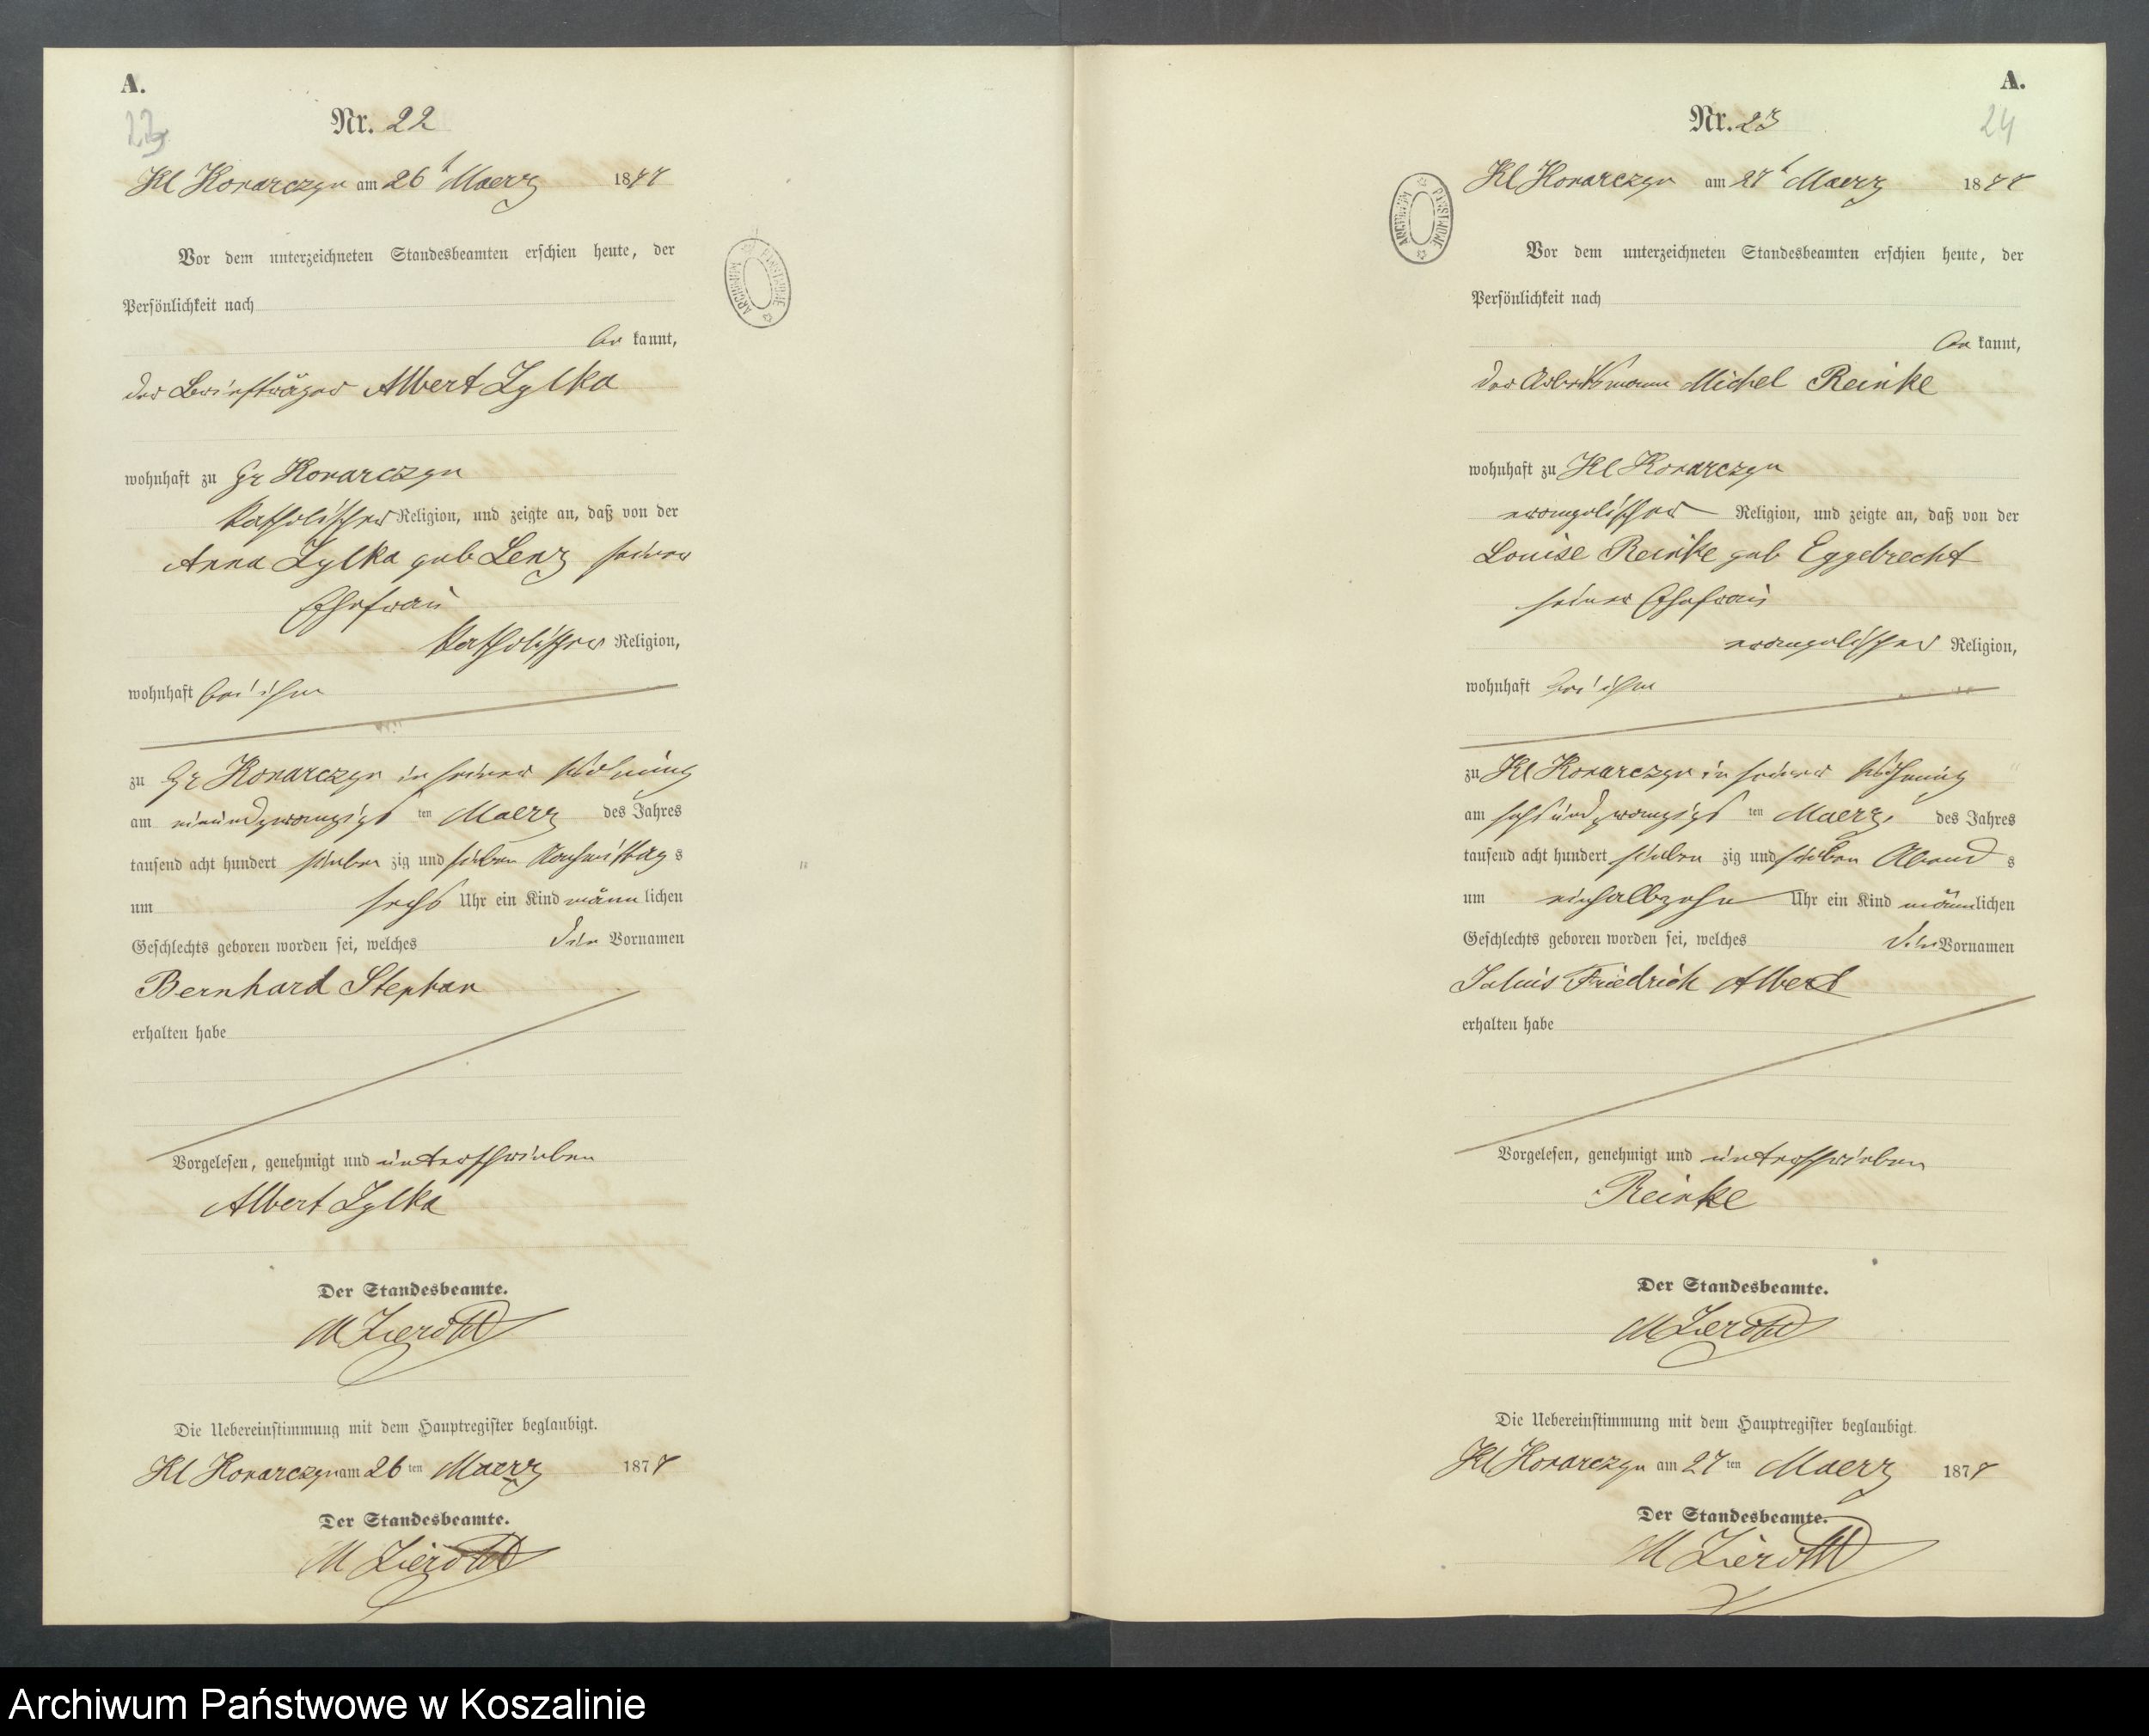 A.
23
Nr. 22
Kl Konarczyn am 26t Maerz 1877
Vor dem unterzeichneten Standesbeamten erschien heute, der
Persönlichkeit nach
be kannt,
der Briefträger Albert Zylka
wohnhaft zu Gr Konarczyn
katholischer Religion, und zeigte an, daß von der
Anna Zylka geb Lenz seiner
Ehefrau
katholischer Religion,
wohnhaft bei ihm
zu Gr Konarczyn in seiner Wohnung
am einundzwanzigst ten Maerz des Jahres
tausend acht hundert sieben zig und sieben Nachmittag s
um sechs Uhr ein Kind männ lichen
Geschlechts geboren worden sei, welches die Vornamen
Bernhard Stephan
erhalten habe
Vorgelesen, genehmigt und unterschrieben
Albert Zylka
Der Standesbeamte.
Die Uebereinstimmung mit dem Hauptregister beglaubigt.
Kl Konarczyn am 26 ten Maerz 1877
Der Standesbeamte.
ARCHIWUM PAŃSTWOWE
A.
24
Nr. 23
Kl Konarczyn am 27t Maerz 1877
Vor dem unterzeichneten Standesbeamten erschien heute, der
Persönlichkeit nach
be kannt,
der Arbeitsmann Michel Reinke
wohnhaft zu Kl Konarczyn
evangelischer Religion, und zeigte an, daß von der
Louise Reinke geb Eggebrecht
seiner Ehefrau
evangelischer Religion,
wohnhaft bei ihm
zu Kl Konarczyn in seiner Wohnung
am sechsundzwanzigst ten Maerz des Jahres
tausend acht hundert sieben zig und sieben Abend s
um einhalbzehn Uhr ein Kind männlichen
Geschlechts geboren worden sei, welches die Vornamen
Julius Friedrich Albert
erhalten habe
Vorgelesen, genehmigt und unterschrieben
Reinke
Der Standesbeamte.
Die Uebereinstimmung mit dem Hauptregister beglaubigt.
Kl Konarczyn am 27 ten Maerz 1877
Der Standesbeamte.
ARCHIWUM PAŃSTWOWE
Archiwum Państwowe w Koszalinie